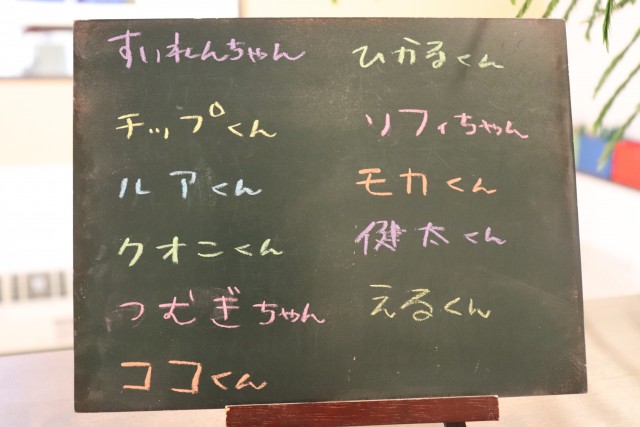 すいれんちゃん
チップくん
ルアくん
クオニくん
つむぎちゃん
ココくん
ひかるくん
ソフィちゃん
モカくん
健太くん
えるくん